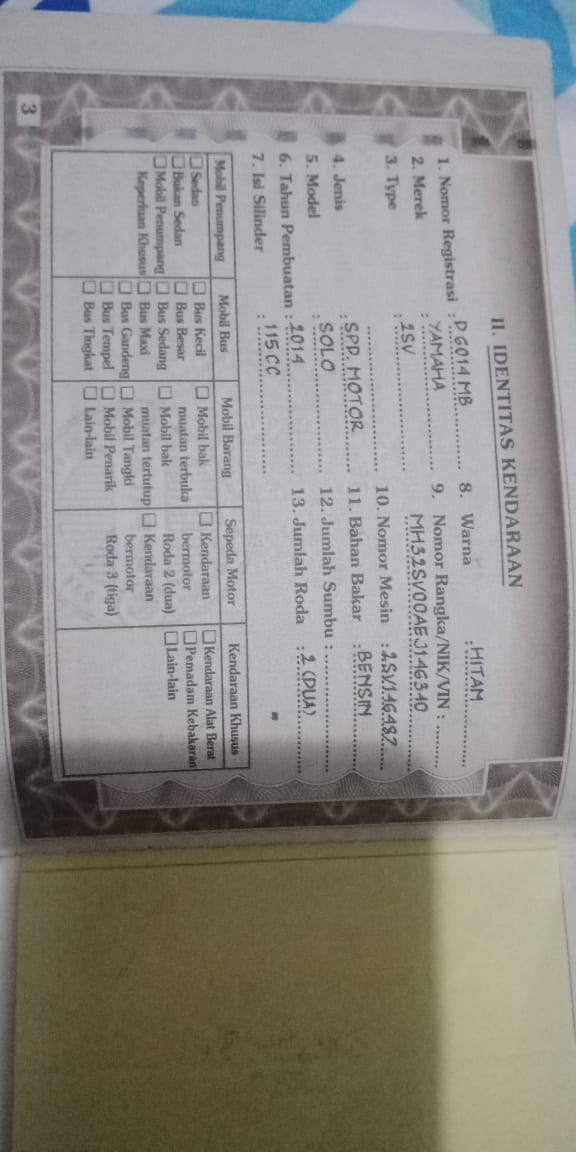 II. IDENTITAS KENDARAAN
1. Nomor Registrasi : D 6014 MB
2. Merek : YAMAHA
3. Type : 2SV
4. Jenis : SPD. MOTOR
5. Model : SOLO
6. Tahun Pembuatan : 2014
7. Isi Silinder : 115 CC
8. Warna : HITAM
9. Nomor Rangka/NIK/VIN :
MH32SV00AEJ146340
10. Nomor Mesin : 2SV146487
11. Bahan Bakar : BENSIN
12. Jumlah Sumbu :
13. Jumlah Roda : 2 (DUA)
Mobil Penumpang
Sedan
Bukan Sedan
Mobil Penumpang
Keperluan Khusus
Mobil Bus
Bus Kecil
Bus Besar
Bus Sedang
Bus Maxi
Bus Gandeng
Bus Tempel
Bus Tingkat
Mobil Barang
Mobil bak
muatan terbuka
Mobil bak
muatan tertutup
Mobil Tangki
Mobil Penarik
Lain-lain
Sepeda Motor
Kendaraan
bermotor
Roda 2 (dua)
Kendaraan
bermotor
Roda 3 (tiga)
Kendaraan Khusus
Kendaraan Alat Berat
Pemadam Kebakaran
Lain-lain
3